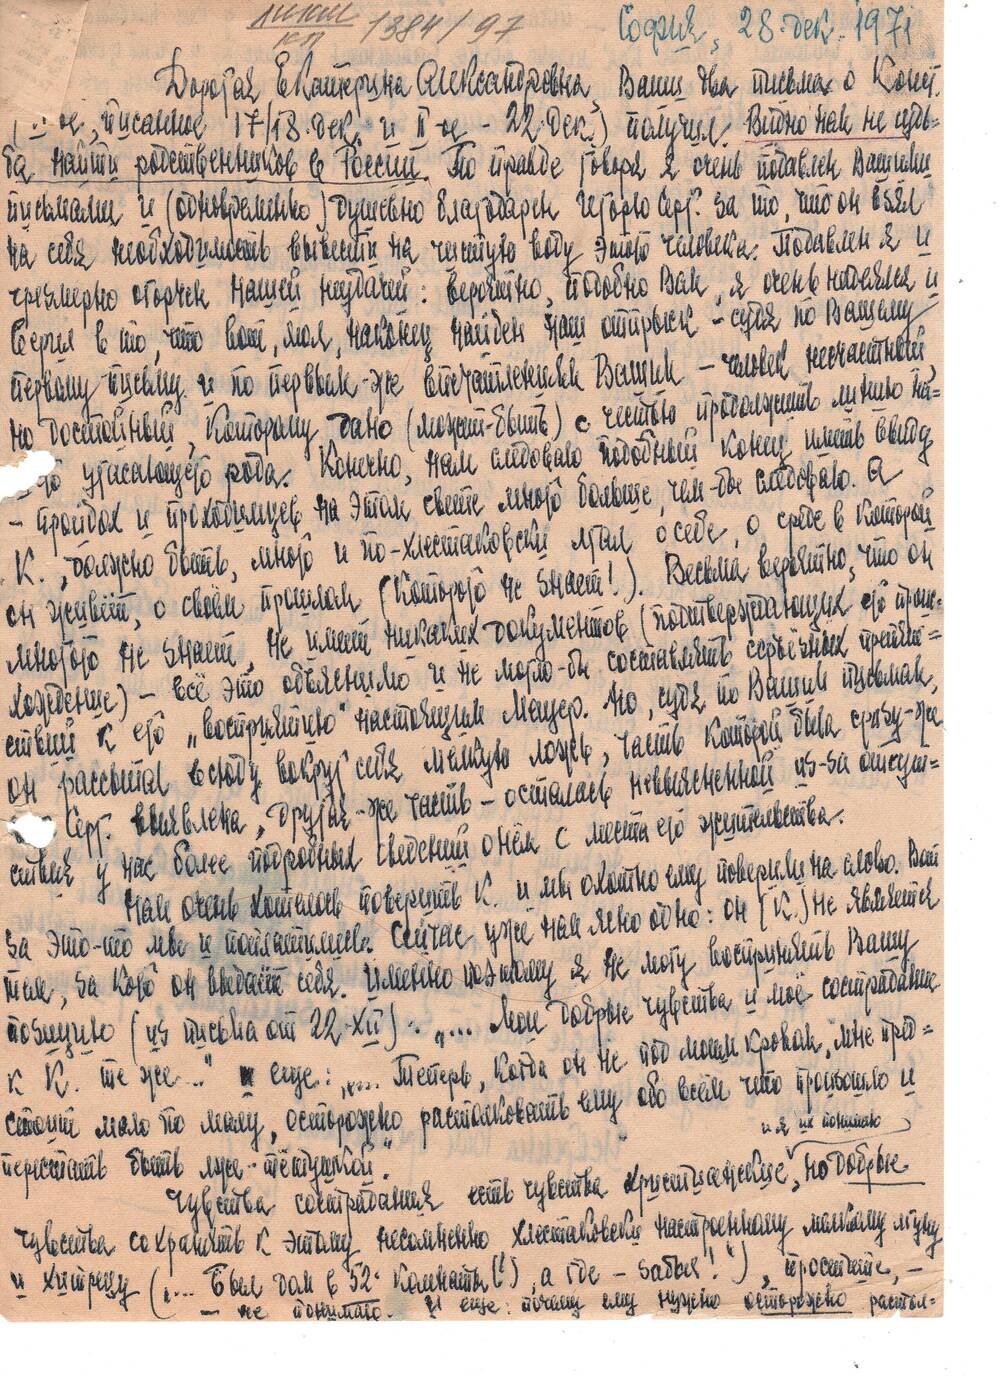 ЛИКМ
КП 1384/97
София, 28. дек. 1971
Дорогая Екатерина Александровна, Ваши два письма о Конст.
(I-ое, писанное 17/18. дек. и II-ое - 22. дек.) получил. Видно нам не судь-
ба найти родственников в России. По правде говоря я очень подавлен Вашими
письмами и (одновременно) душевно благодарен Игорю Серг. за то, что он взял
на себя необходимость вывести на чистую воду этого человека. Подавлен я и
чрезмерно огорчен нашей неудачей: вероятно, подобно Вам, я очень надеялся и
верил в то, что вот, мол, наконец найден наш отпрыск - судя по Вашему
первому письму и по первым-же впечатлениям Вашим - человек несчастный,
но достойный, которому дано (может-быть) с честью продолжить линию на-
шего угасающего рода. Конечно, нам следовало подобный конец иметь ввиду
- пройдох и проходимцев на этом свете много больше, чем-бы следовало. А
К., должно быть, много и по-хлестаковски лгал о себе, о среде в которой
он живёт, о своём прошлом (которого не знает!). Весьма вероятно, что он
многого не знает, не имеет никаких документов (подтверждающих его проис-
хождение) - всё это объяснимо и не могло-бы составлять серьёзных препят-
ствий к его „восприятию" настоящим Мещер. Но, судя по Вашим письмам,
он рассыпал всюду вокруг себя мелкую ложь, часть которой была сразу-же
Серг. выявлена, другая-же часть - осталась невыясненной из-за отсут-
ствия у нас более подробных сведений о нём с места его жительства.
Нам очень хотелось поверить К. и мы охотно ему поверили на слово. Вот
за это-то мы и поплатились. Сейчас уже нам ясно одно: он (К.) не является
тем, за кого он выдаёт себя. Именно поэтому я не могу воспринять Вашу
позицию (из письма от 22.XII): „... Мои добрые чувства и моё сострадание
к К. те же..." и еще: „... Теперь, когда он не под моим кровом, мне пред-
стоит мало по малу, осторожно растолковать ему обо всём что произошло и
перестать быть лже-тётушкой".
и я их понимаю
Чувства сострадания есть чувства христианские, но добрые
чувства сохранять к этому несомненно хлестаковски настроенному мелкому лгуну
и хитрецу („... Был дом в 52 комнаты(!), а где - забыл!"), простите, -
- не понимаю. И еще: почему ему нужно осторожно растол-